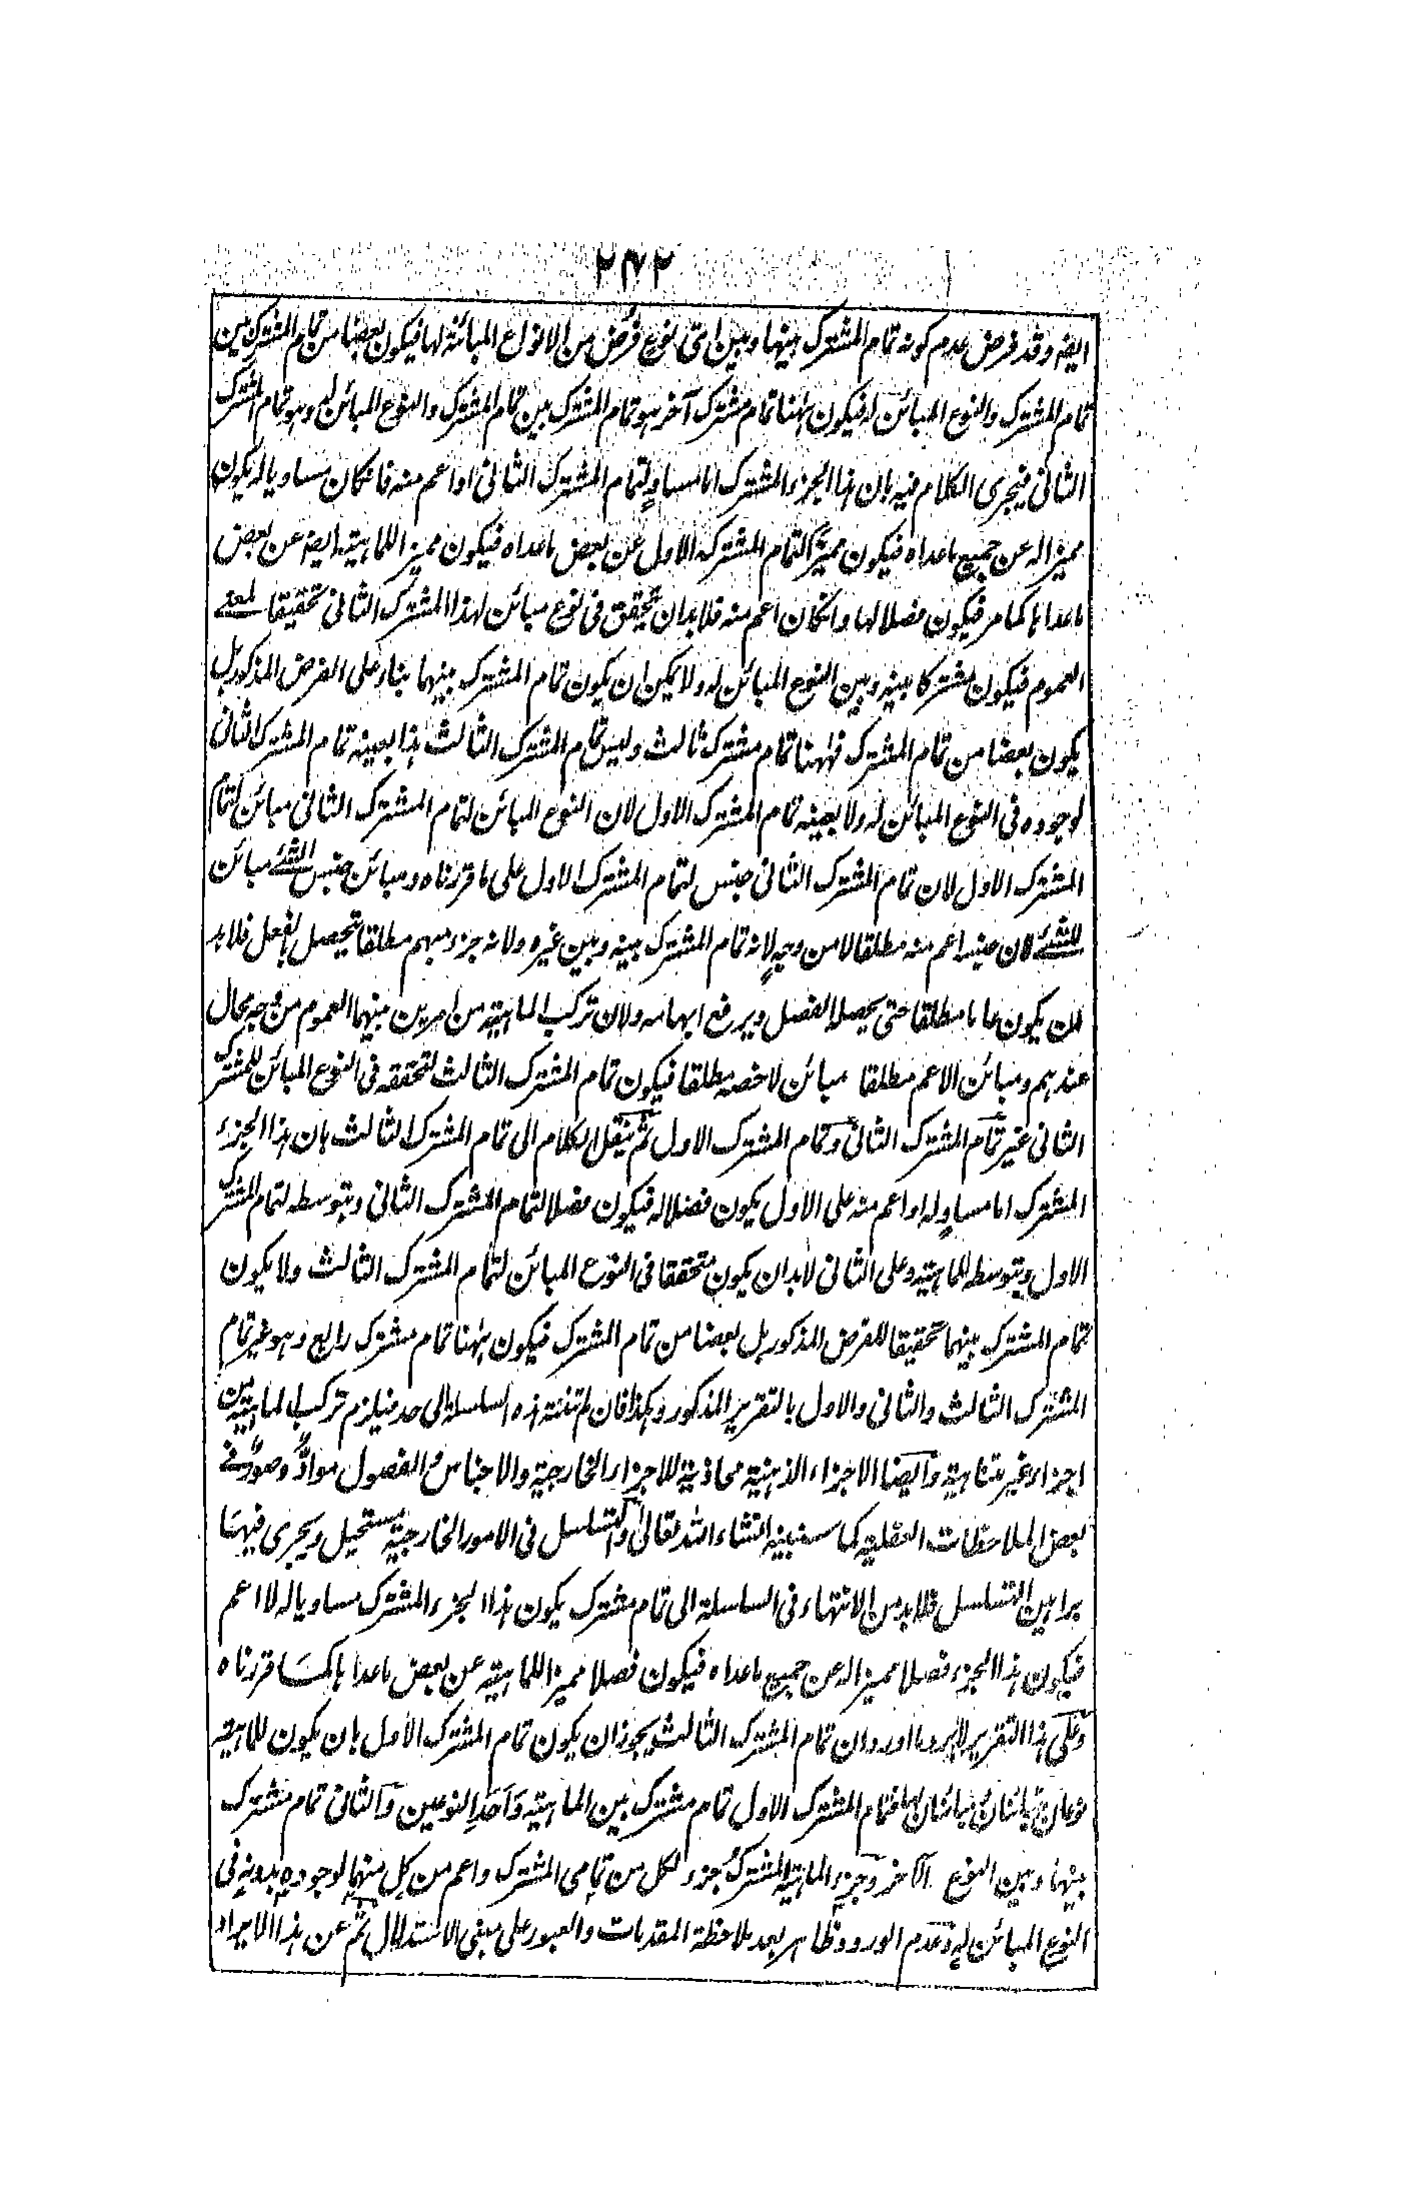 ٢٧٢
ايضه وقد فرض عدم كونه تمام المشترك بينها وبين اى نوع فُرض من الانواع المبائنة لها فيكون بعضا من تمام المشترك بين
تمام المشترك والنوع المبائن له فيكون ههنا تمام مشترك آخر هو تمام المشترك بين تمام المشترك والنوع المبائن له وهو تمام المشترك
الثانى فيجرى الكلام فيه بان هذا الجزء المشترك اما مساوٍ لتمام المشترك الثانى او اعم منه فانكان مساويا له يكون
مميزا له عن جميع ماعداه فيكون مميّزا لتمام المشترك الاول عن بعض ماعداه فيكون مميزا للماهيته ايضه عن بعض
ماعداها كما مر فيكون فصلا لها وانكان اعم منه فلابد ان يتحقق فى نوع مبائن لهذا المشترك الثانى تحقيقا لمعنے
العموم فيكون مشتركا بينه وبين النوع المبائن له ولا يمكن ان يكون تمام المشترك بينهما بناء على الفرض المذكور بل
يكون بعضا من تمام المشترك فههنا تمام مشترك ثالث وليس تمام المشترك الثالث هذا بعينه تمام المشترك الثانى
لوجوده فى النوع المبائن له ولا بعينه تمام المشترك الاول لان النوع المبائن لتمام المشترك الثانى مبائن لتمام
المشترك الاول لان تمام المشترك الثانى جنس لتمام المشترك الاول على ما قررناه ومبائن جنس الشئے مبائن
للشئے لان جنسه اعم منه مطلقا لا من وجهٍ لانه تمام المشترك بينه وبين غيره ولانه جزء مبهم مطلقا يتحصل بالفصل فلابد
ان يكون عاما مطلقا حتى يحصله الفصل ويرفع ابهامه ولان تركب الماهيته من امرين بينهما العموم من وجهٍ محال
عندهم ومبائن الاعم مطلقا مبائن لاخصه مطلقا فيكون تمام المشترك الثالث لتحققه فى النوع المبائن للمشترك
الثانى غير تمام المشترك الثانى وتمام المشترك الاول ثم ينقل الكلام الى تمام المشترك الثالث بان هذا الجزء
المشترك اما مساوٍ له او اعم منه على الاول يكون فصلا له فيكون فصلا لتمام المشترك الثانى وبتوسطه لتمام المشترك
الاول وبتوسطه للماهيته وعلى الثانى لابد ان يكون متحققا فى النوع المبائن لتمام المشترك الثالث ولا يكون
تمام المشترك بينهما تحقيقا للفرض المذكور بل بعضا من تمام المشترك فيكون ههنا تمام مشترك رابع وهو غير تمام
المشترك الثالث والثانى والاول بالتقرير المذكور وهكذا فان لم تنته هذه السلسلة الى حد فيلزم تركب الماهيته من
اجزاء غير متناهية وايضا الاجزاء الذهنية محاذية للاجزاء الخارجية والاجناس والفصول موادّ وصورٌ فے
بعض الملاحظات العقلية كما سنبينه انشاء الله تعالىٰ والتسلسل فى الامور الخارجية مستحيل ويجرى فيها
براهين التسلسل فلابد من الانتهاء فى السلسلة الى تمام مشترك يكون هذا الجزء المشترك مساويا له لا اعم
فيكون هذا الجزء فصلا مميزا له عن جميع ماعداه فيكون فصلا مميزا للماهيته عن بعض ماعداها كما قررناه
وعلى هذا التقرير لا يرد ما اورد ان تمام المشترك الثالث يجوز ان يكون تمام المشترك الاول بان يكون للماهيته
نوعان متبائنان مبائنان لها فتمام المشترك الاول تمام مشترك بين الماهيته واحد النوعين والثانى تمام مشترك
بينها وبين النوع الآخر وجزء الماهيته المشترك جزء لكل من تمامى المشترك واعم من كل منهما لوجوده بدونه فى
النوع المبائن له وعدم الورود ظاهر بعد ملاحظة المقدمات والعبور على مبنى الاستدلال ثم عن هذا الايراد